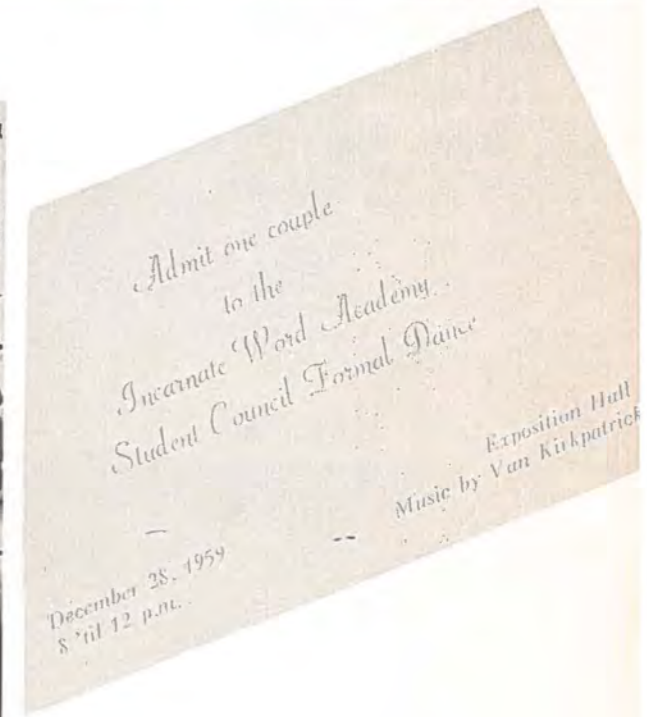 Admit one couple
to the
Incarnate Word Academy
Student Council Formal Dance
Exposition Hall
Music by Van Kirkpatrick
December 28, 1959
8 'til 12 p.m.